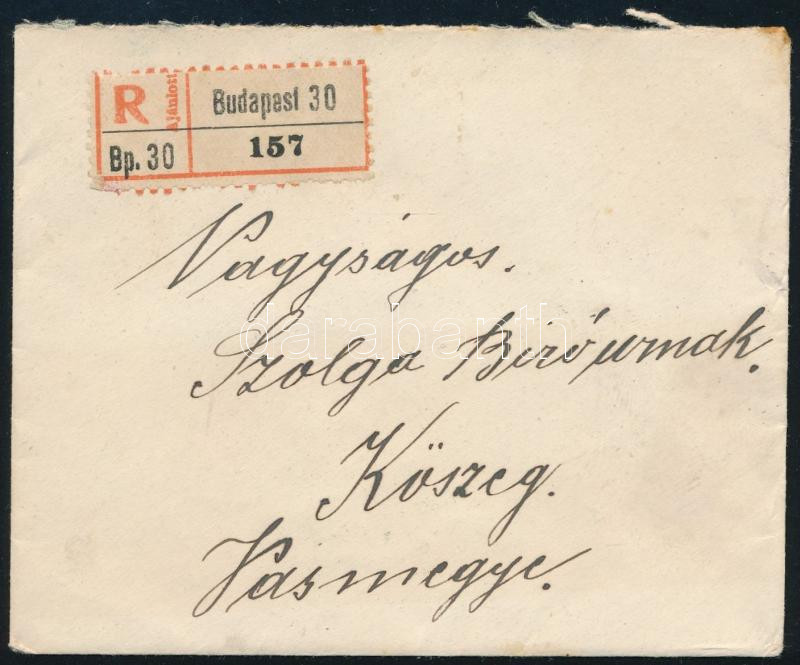 R Ajánlott Budapest 30
Bp. 30 157
Nagyságos.
Szolga Biró urnak.
darabanth
Köszeg.
Vasmegye.